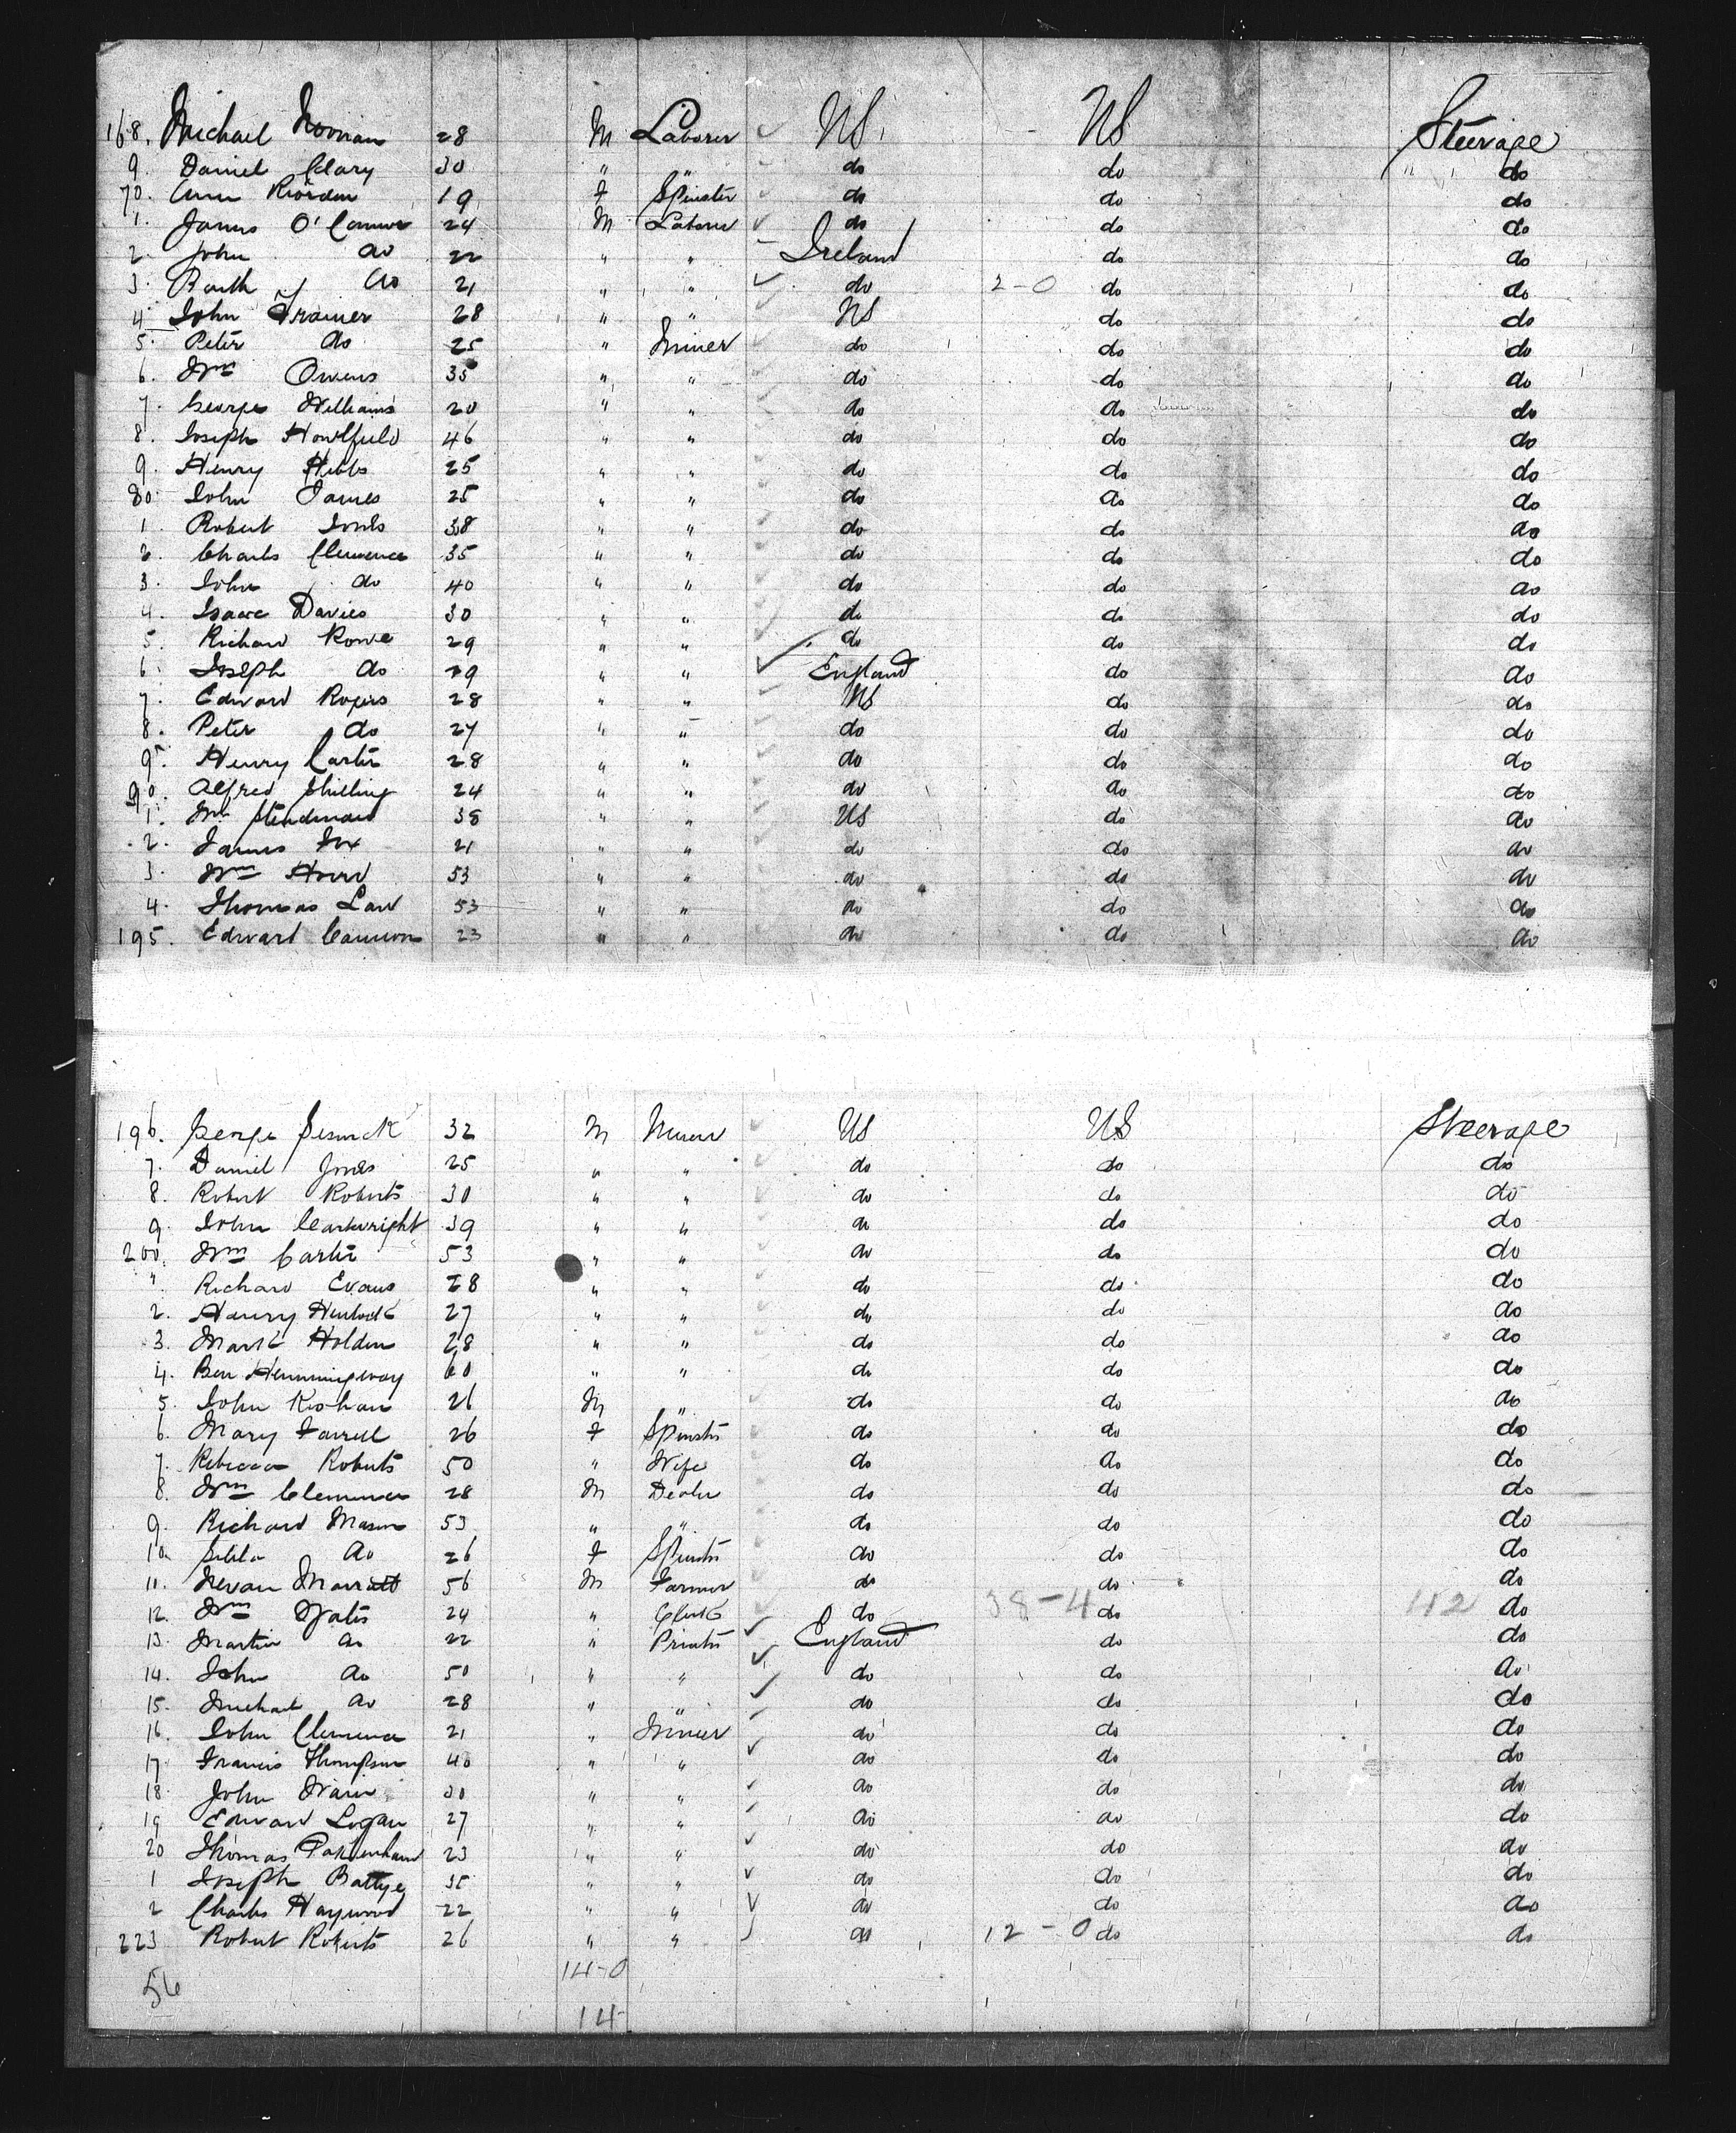 168. Michael Noonan 28 M Laborer US. US Steerage
9. Daniel Clary 30 " " do do do
70. Ann Riordan 19 F Spinster do do do
1. James O'Connor 24 M Laborer do do do
2. John do 22 " " Ireland do do
3. do 21 " " do 2-0 do do
4. John Trainer 28 " " US do do
5. Peter do 25 " Miner do do do
6. Wm Owens 35 " " do do do
7. George Williams 20 " " do do do
8. Joseph 46 " " do do do
9. Henry Hibbs 25 " " do do do
80. John James 25 " " do do do
1. Robert Jones 38 " " do do do
2. Charles Clemence 35 " " do do do
3. John do 40 " " do do do
4. Isaac Davies 30 " " do do do
5. Richard Rowe 29 " " do do do
6. Joseph do 29 " " England do do
7. Edward Rogers 28 " " US do do
8. Peter do 27 " " do do do
9. Henry Carter 28 " " do do do
90. Alfred Shilling 24 " " do do do
1. Wm Steadman 38 " " US do do
2. James 21 " " do do do
3. Wm 53 " " do do do
4. Thomas Law 53 " " do do do
195. Edward Cannon 23 " " do do do
196. George 32 M Miner US US Steerage
7. Daniel Jones 25 " " do do do
8. Robert Roberts 30 " " do do do
9. John Cartwright 39 " " do do do
200. Wm Carter 53 " " do do do
". Richard Evans 28 " " do do do
2. Henry 27 " " do do do
3. Mark Holden 28 " " do do do
4. Ben Hemmingway 60 " " do do do
5. John 26 M " do do do
6. Mary Farrell 26 F Spinster do do do
7. Rebecca Roberts 50 " Wife do do do
8. Wm Clemence 28 M Dealer do do do
9. Richard Mason 53 " " do do do
10. do 26 F Spinster do do do
11. 56 M Farmer do do do
12. Wm Yates 24 " Clerk do 38-4 do 112 do
13. Martin do 22 " Printer England do do
14. John do 50 " " do do do
15. Michael do 28 " " do do do
16. John Clemence 21 " Miner do do do
17. Francis Thompson 40 " " do do do
18. John 30 " " do do do
19 Edward Logan 27 " " do do do
20 Thomas Pakenham 23 " " do do do
1 Joseph Battye 35 " " do do do
2 Charles Haywood 22 " " do do do
223 Robert Roberts 26 " " do 12-0 do do
56 14-0
14-